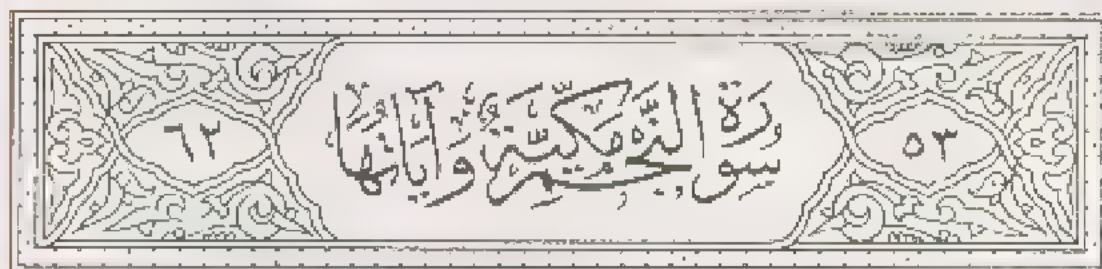 ٥٣ سُورَةُ النَّجْمِ مَكِّيَّةٌ وَآيَاتُهَا ٦٢